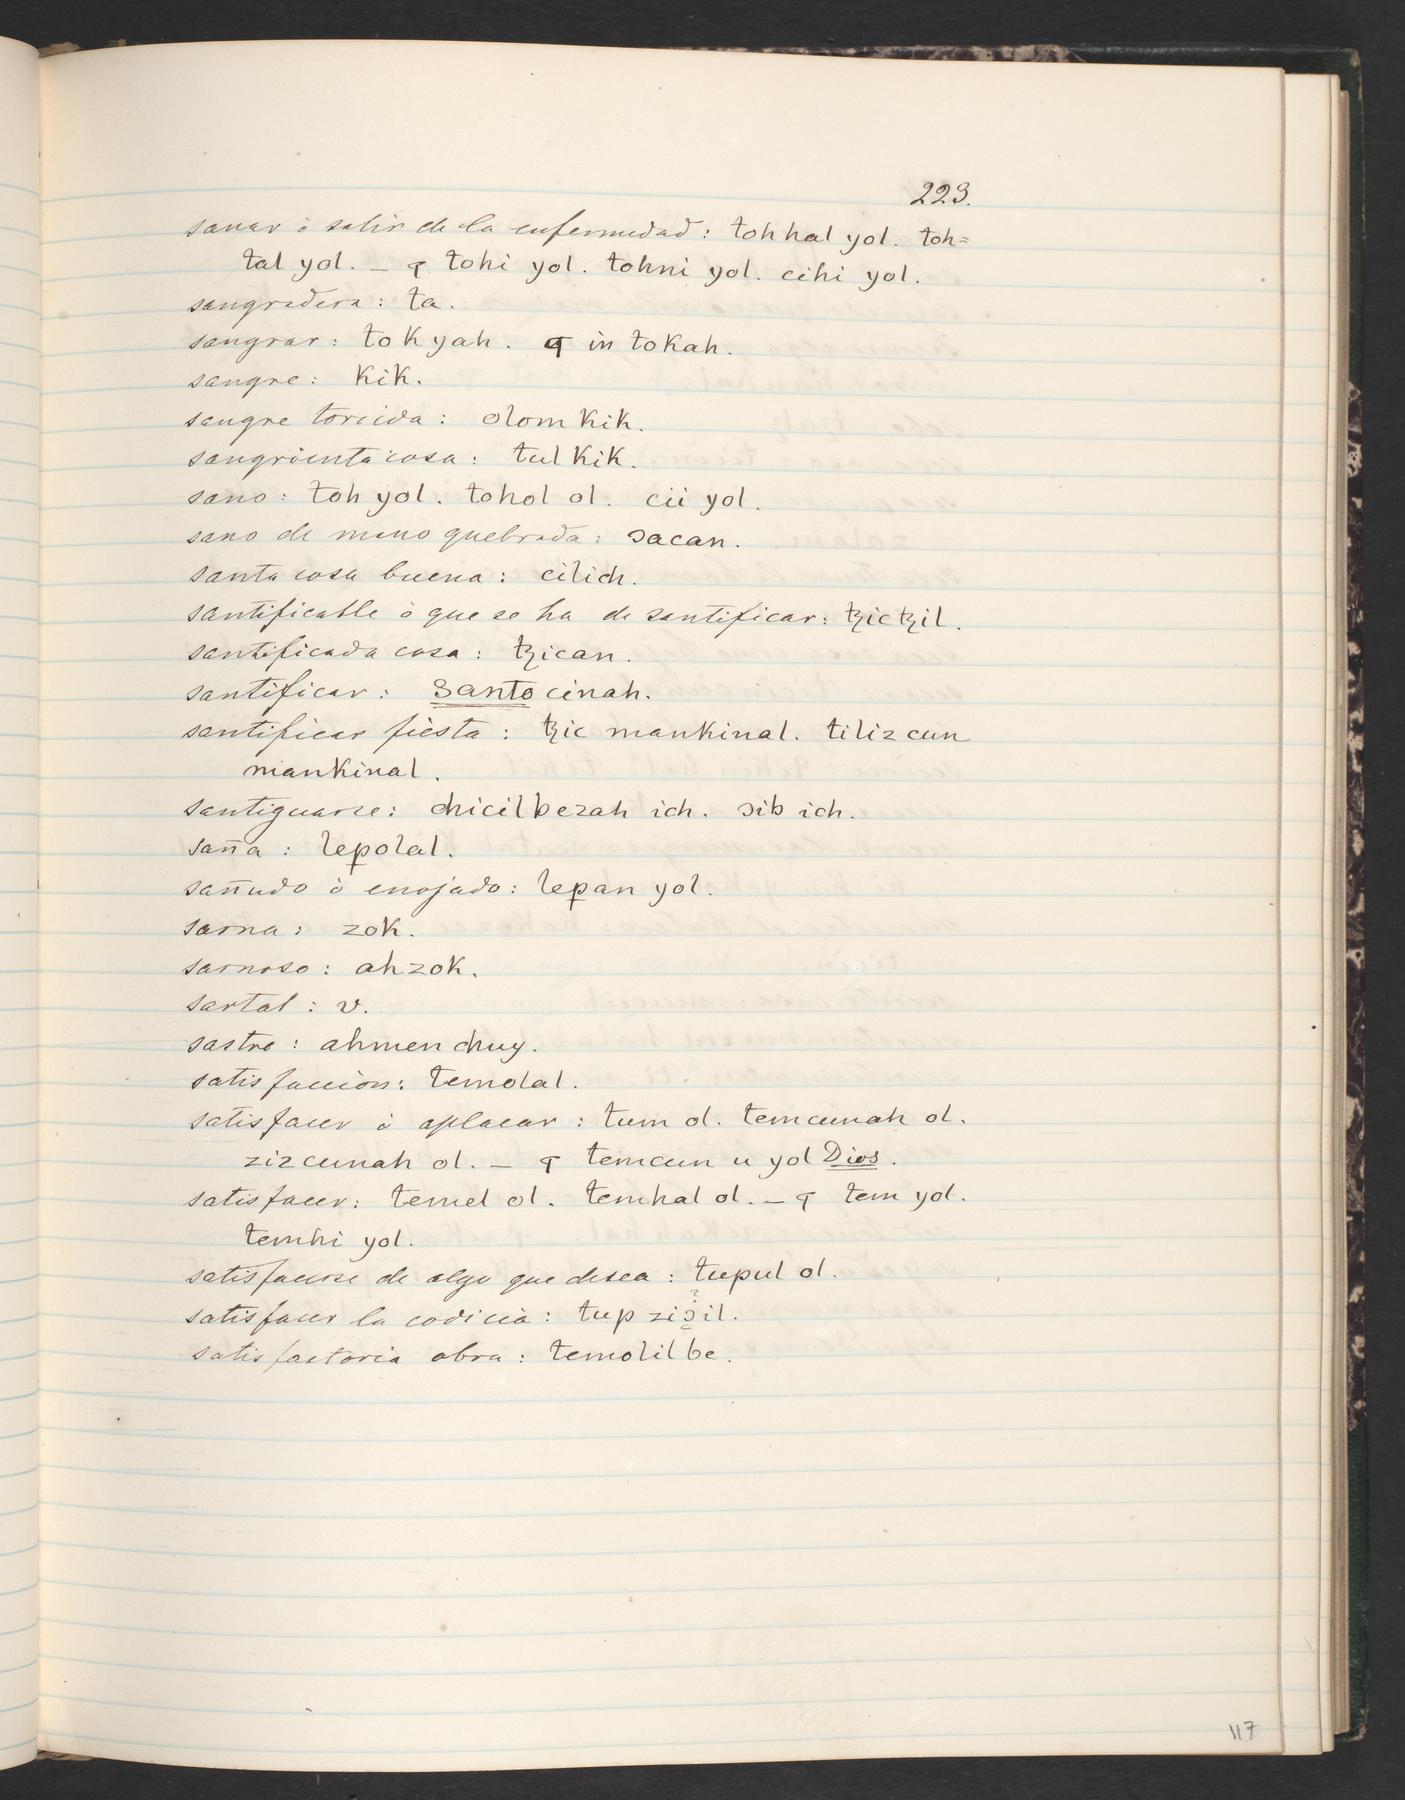 223.
sanar ò salir de la enfermedad: tohhal yol. toh=
tal yol. — ꟼ tohi yol. tohni yol. cihi yol.
sangradera: ta.
sangrar: tokyah. ꟼ in tokah.
sangre: kik.
sangre torcida: olom kik.
sangrienta cosa: tul kik.
sano: toh yol. tohol ol. cii yol.
sano de mano quebrada: ɔacan.
santa cosa buena: cilich.
santificable ò que se ha de santificar: tzictzil.
santificada cosa: tzican.
santificar: Santo cinah.
santificar fiesta: tzic mankinal. tiliz cun
mankinal.
santiguarse: chicilbezah ich. ɔib ich.
saña: lepolal.
sañudo ò enojado: lepan yol.
sarna: zok.
sarnoso: ahzok.
sartal: v.
sastre: ahmen chuy.
satisfaccion: temolal.
satisfacer ò aplacar: tum ol. temcunah ol.
zizcunah ol. — ꟼ temcun u yol Dios.
satisfacer: temel ol. temhal ol. — ꟼ tem yol.
temhi yol.
satisfacerse de algo que desea: tupul ol.
?
satisfacer la codicia: tup ziɔil.
satisfactoria obra: temolil be.
117